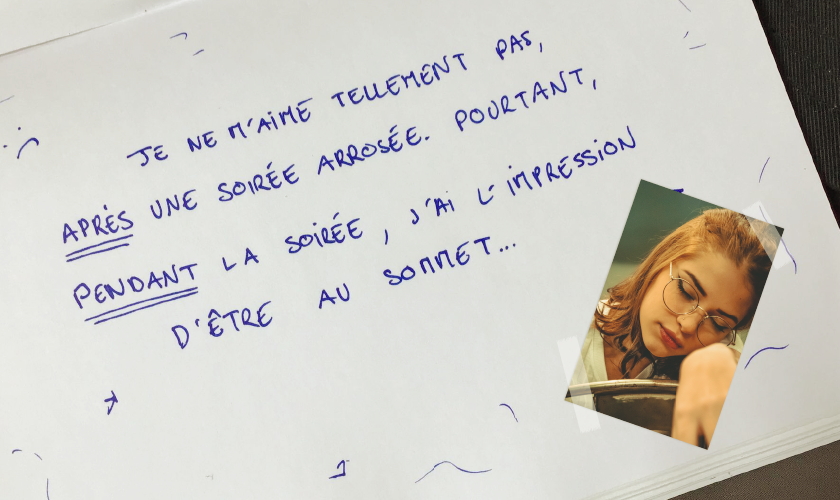 JE NE M'AIME TELLEMENT PAS,
APRÈS UNE SOIRÉE ARROSÉE. POURTANT,
PENDANT LA SOIRÉE, J'AI L'IMPRESSION
D'ÊTRE AU SOMMET...